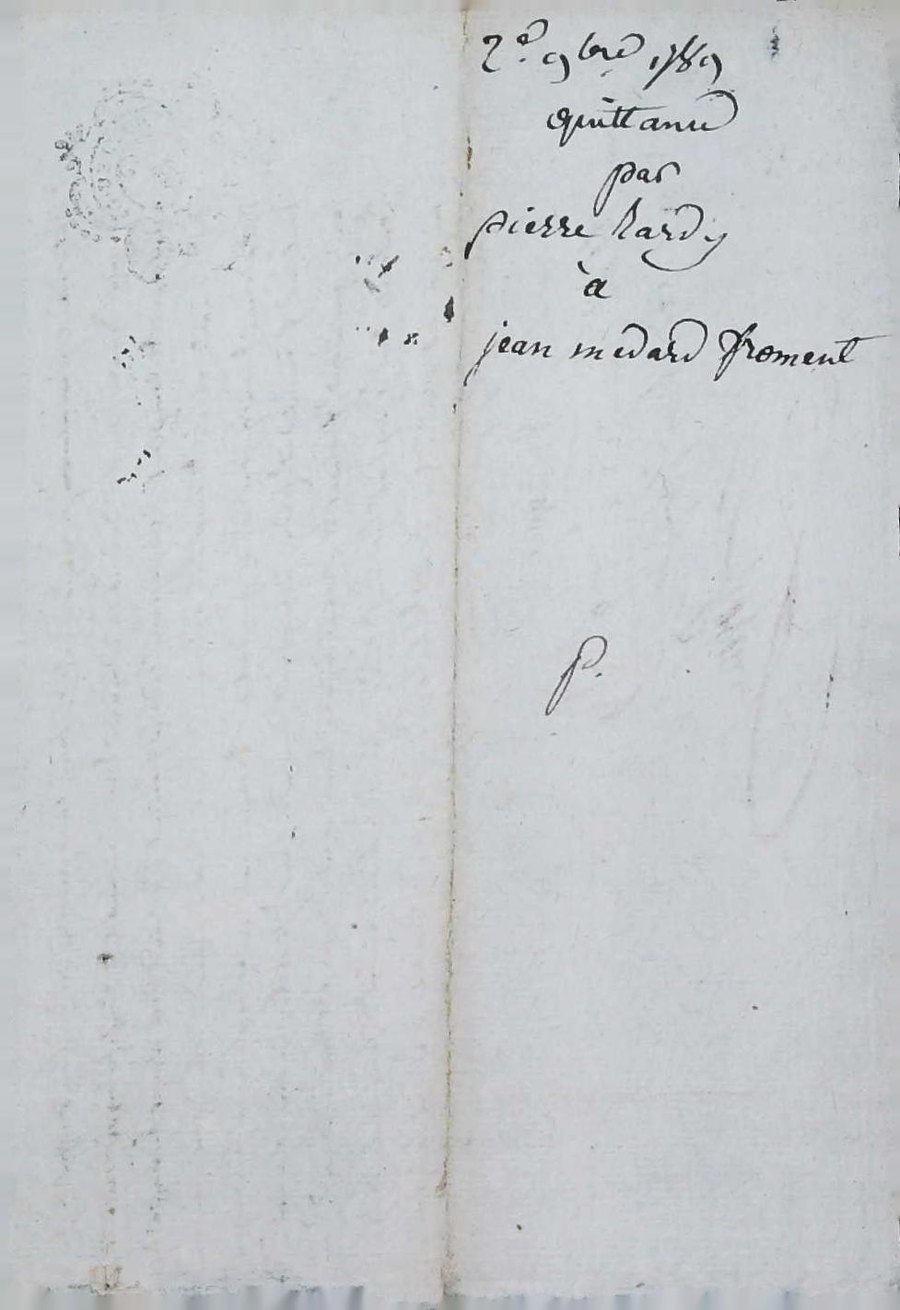 2e. 9bre 1789
quittance
par
pierre hardy
à
jean medard froment
P.